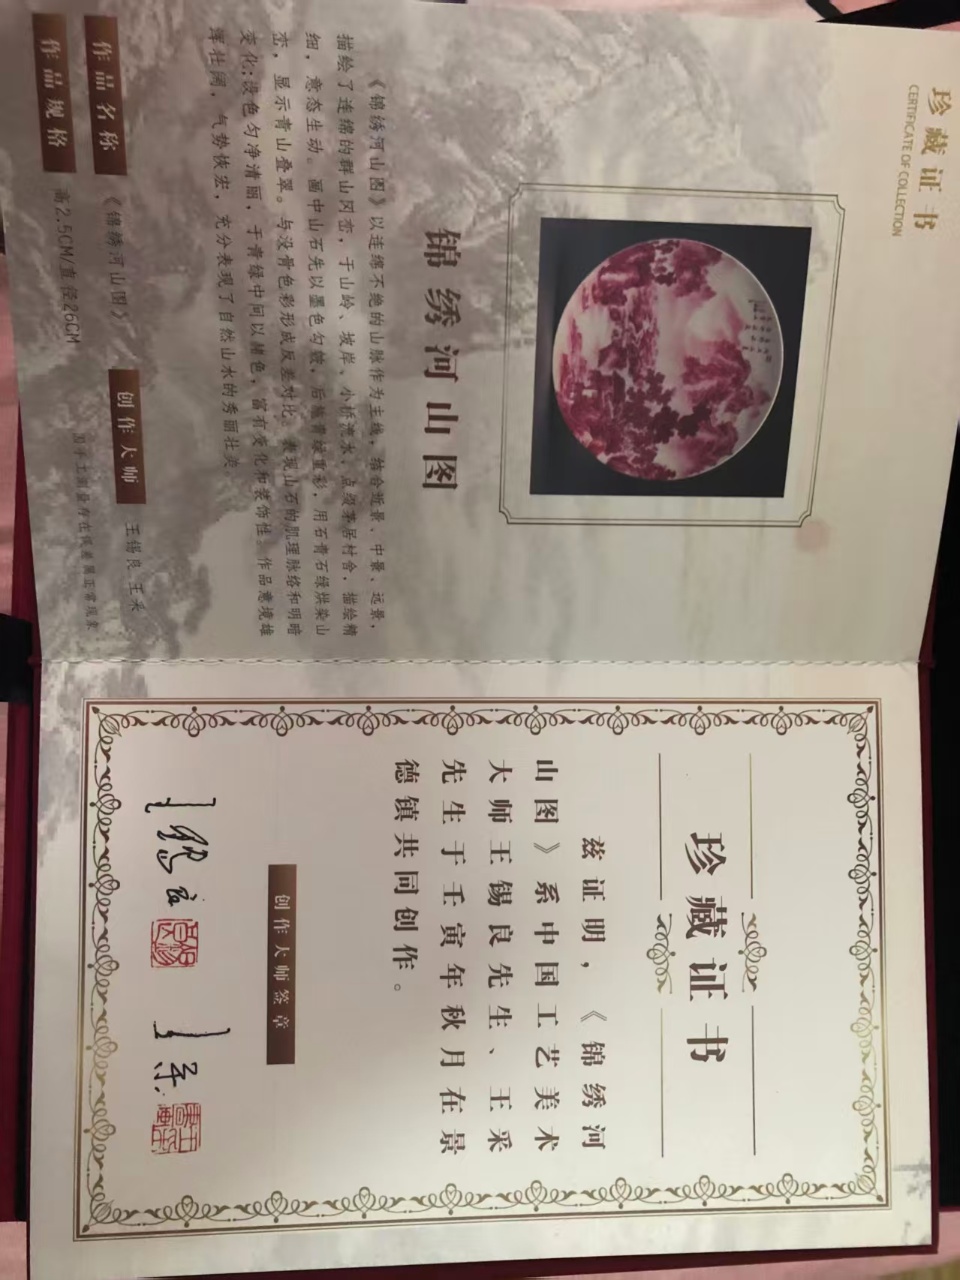 珍藏证书
CERTIFICATE OF COLLECTION
锦绣河山图
《锦绣河山图》以连绵不绝的山脉作为主线，结合近景、中景、远景，
描绘了连绵的群山冈峦，于山岭、坡岸、小桥流水、点缀茅居村舍，描绘精
细，意态生动。画中山石先以墨色勾皴，后施青绿重彩，用石青石绿烘染山
峦，显示青山叠翠。与没骨色彩形成反差对比。表现山石的肌理脉络和明暗
变化;设色匀净清丽，于青绿中间以赭色，富有变化和装饰性。作品意境雄
浑壮阔，气势恢宏，充分表现了自然山水的秀丽壮美。
作品名称 《锦绣河山图》 创作大师 王锡良、王采
作品规格 高2.5CM/直径26CM 因手工测量存在误差属正常现象
珍藏证书
兹证明，《锦绣河
山图》系中国工艺美术
大师王锡良先生、王采
先生于壬寅年秋月在景
德镇共同创作。
创作大师签章
王锡良 王采